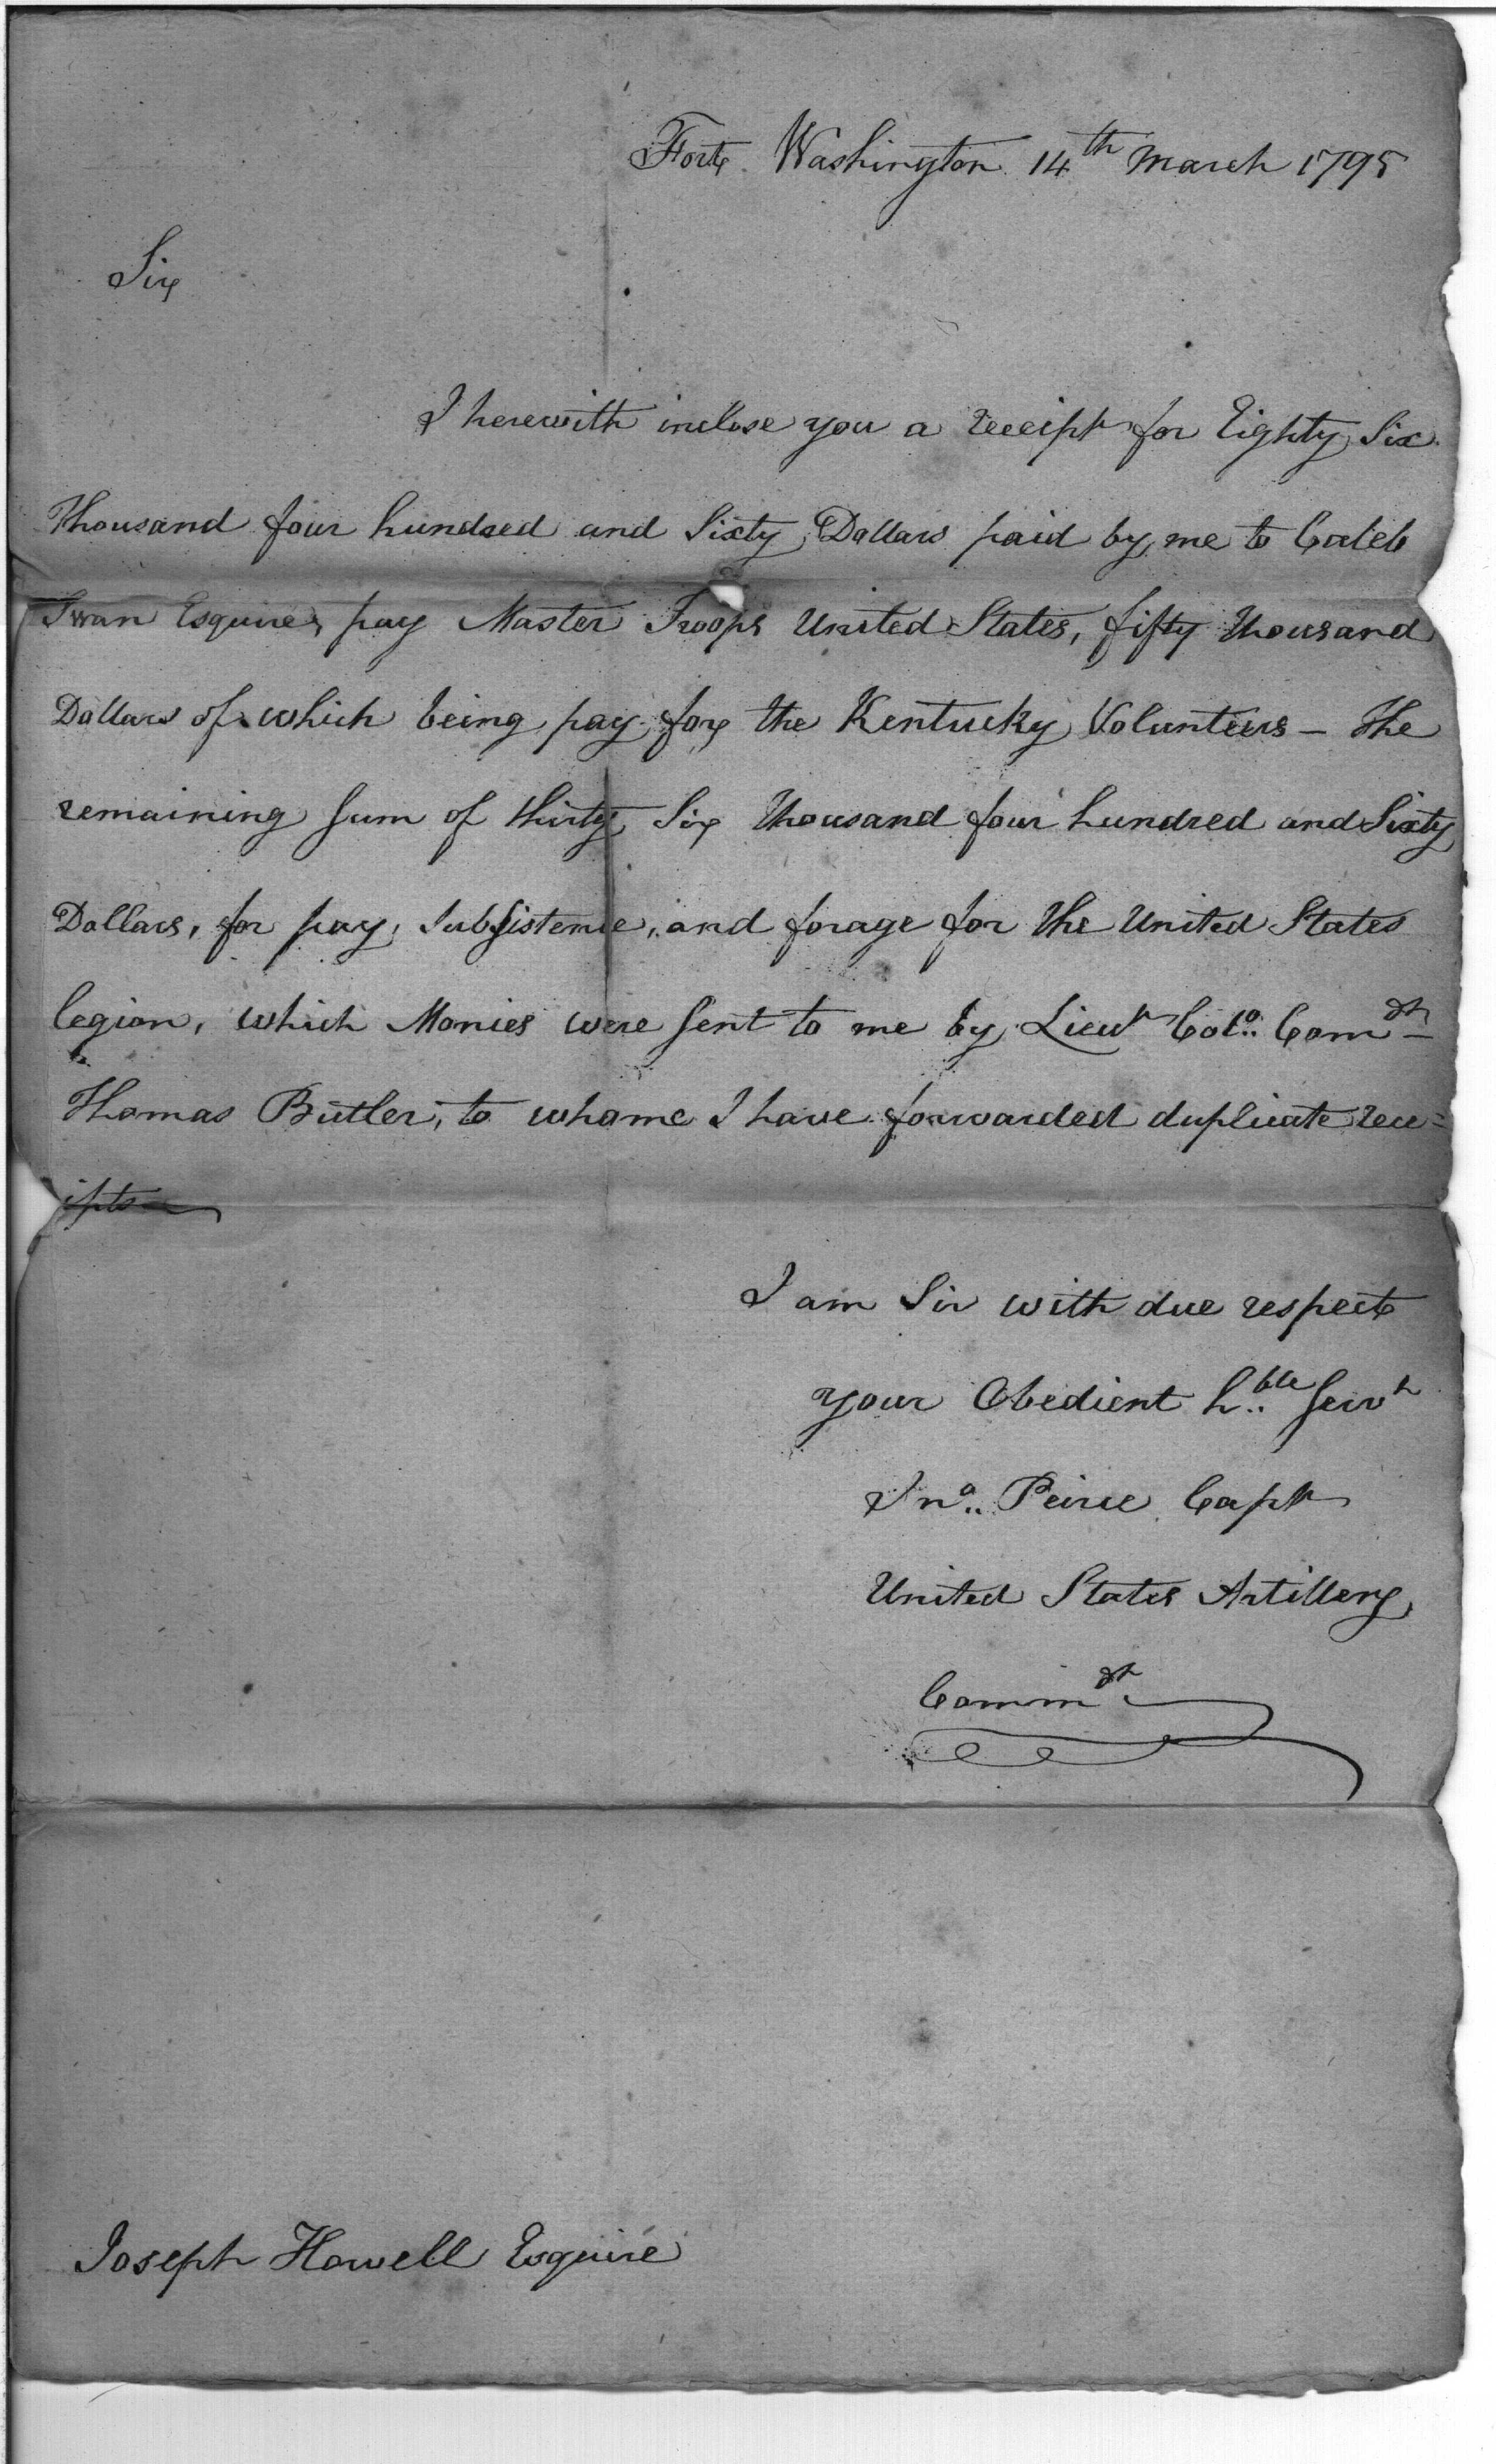 Fort Washington 14th March 1795
Sir
I herewith inclose you a receipt for Eighty Six
Thousand four hundred and Sixty Dollars paid by me to Caleb
Swan Esquire, pay Master Troops United States, fifty thousand
Dollars of which being pay for the Kentucky Volunteers – The
remaining sum of thirty Six thousand four hundred and Sixty
Dollars, for pay, Subsistence, and forage for the United States
legion, which Monies were sent to me by Lieut Colo. Comdt
Thomas Butler, to whome I have forwarded duplicate rece=
ipts
I am Sir with due respect
your Obedient hble Servt
Jno. Peirce Capt
United States Artillery
Commdt
Joseph Howell Esquire